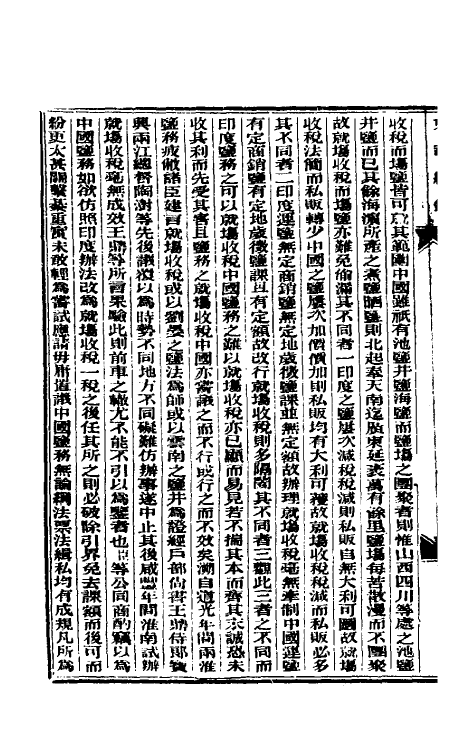 收稅而場鹽皆可爲其範圍中國雖祇有池鹽井鹽海鹽而鹽場之團聚者則惟山西四川等處之池鹽
井鹽而已其餘海濱所產之煮鹽晒鹽則北起奉天南迄廣東延袤萬有餘里鹽場每苦散漫而不團聚
故就場收稅而場鹽亦難免偷漏其不同者一印度之鹽屢次減稅稅減則私販自無大利可圖故就場
收稅法簡而私販轉少中國之鹽屢次加價價加則私販均有大利可穫故就場收稅稅減而私販必多
其不同者二印度運鹽無定商銷鹽無定地歲徵鹽課並無定額故辦理就場收稅毫無牽制中國運鹽
有定商銷鹽有定地歲徵鹽課且有定額故改行就場收稅則多隔閡其不同者三觀此三者之不同而
印度鹽務之可以就場收稅中國鹽務之難以就場收稅亦已顯而易見若不揣其本而齊其末誠恐未
收其利而先受其害且鹽務之就場收稅中國亦嘗議之而不行或行之而不效矣溯自道光年間兩淮
鹽務疲敝諸臣建言就場收稅或以劉晏之鹽法爲師或以雲南之鹽井爲證經戶部尚書王鼎侍郎寶
興兩江總督陶澍等先後議覆以爲時勢不同地方不同礙難仿辦事遂中止其後咸豐年間淮南試辦
就場收稅毫無成效王鼎等所言果驗此則前車之轍尤不能不引以爲鑒者也臣等公同商酌竊以爲
中國鹽務如欲仿照印度辦法改爲就場收稅一稅之後任其所之則必破除引界免去課額而後可而
紛更太甚關繫綦重實未敢輕爲嘗試應請毋庸置議中國鹽務無論綱法票法緝私均有成規凡所爲